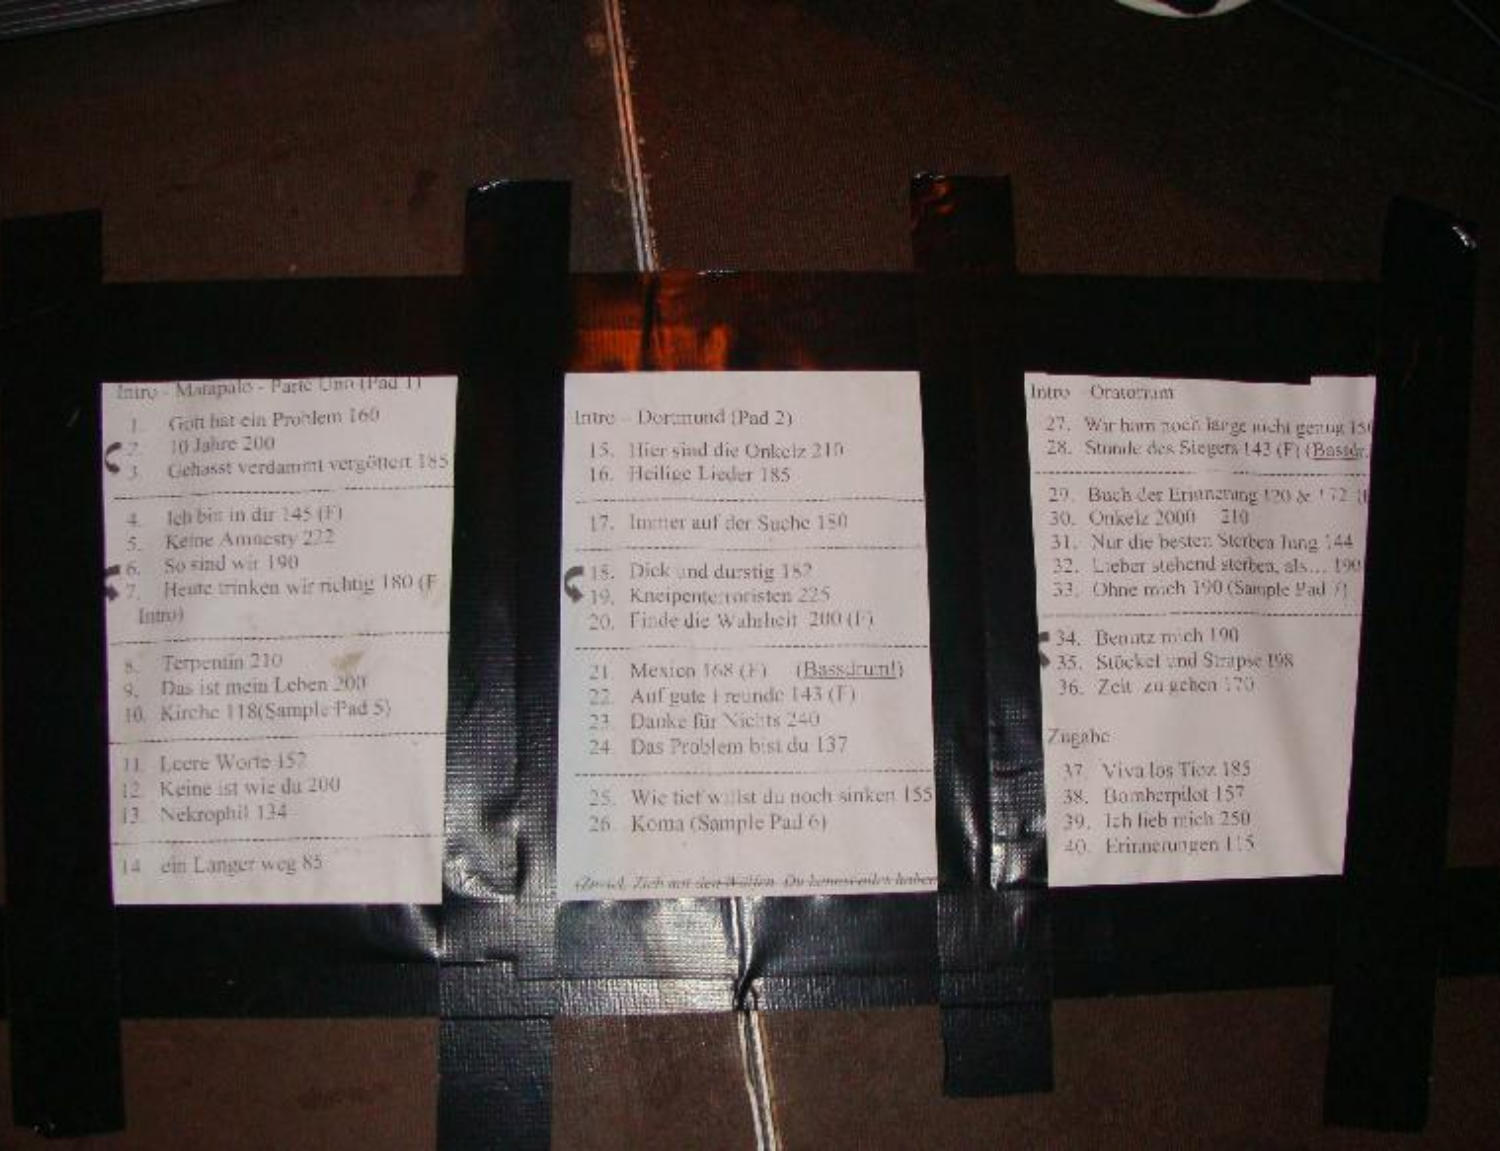 Intro - Matapalo - Parte Uno (Pad 1)
1. Gott hat ein Problem 160
2. 10 Jahre 200
3. Gehasst verdammt vergöttert 185
4. Ich bin in dir 145 (F)
5. Keine Amnesty 222
6. So sind wir 190
7. Heute trinken wir richtig 180 (F
Intro)
8. Terpentin 210
9. Das ist mein Leben 200
10. Kirche 118(Sample Pad 5)
11. Leere Worte 152
12. Keine ist wie du 200
13. Nekrophil 134
14. ein Langer weg 85
Intro – Dortmund (Pad 2)
15. Hier sind die Onkelz 210
16. Heilige Lieder 185
17. Immer auf der Suche 180
18. Dick und durstig 182
19. Kneipenterroristen 225
20. Finde die Wahrheit 200 (F)
21. Mexico 168 (F) (Bassdrum!)
22. Auf gute Freunde 143 (F)
23. Danke für Nichts 240
24. Das Problem bist du 137
25. Wie tief willst du noch sinken 155
26. Koma (Sample Pad 6)
mit den Wölfen, Du kannst alles haben
Intro – Oratorium
27. Wir ham noch lange nicht genug
28. Stunde des Siegers 143 (F) (Bassdr
29. Buch der Erinnerung 120 & 172
30. Onkelz 2000 210
31. Nur die besten Sterben Jung 144
32. Lieber stehend sterben, als... 190
33. Ohne mich 190 (Sample Pad 7)
34. Benutz mich 190
35. Stöckel und Strapse 198
36. Zeit zu gehen 170
Zugabe
37. Viva los Tioz 185
38. Bomberpilot 157
39. Ich lieb mich 250
40. Erinnerungen 115